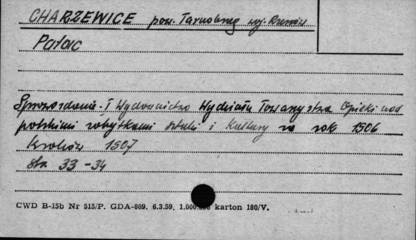 CHARZEWICE pow. Tarnobrzeg woj. Rzeszów
Pałac
Sprawozdania i Wydawnictwo Wydziału Towarzystwa Opieki nad
polskimi zabytkami sztuki i kultury za rok 1506
Kraków 1507
str. 33-34
CWD B-15b Nr 515/P. GDA-869. 6.3.59, 1.000.000 karton 180/V.